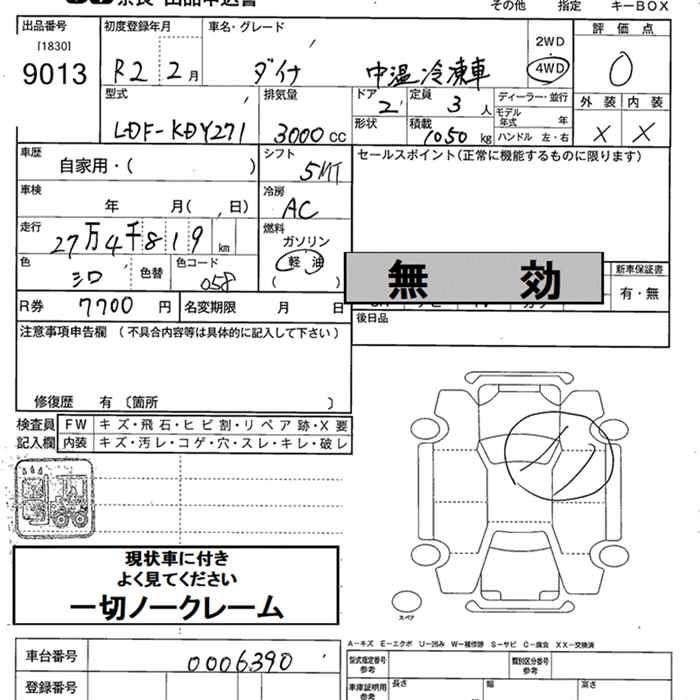 奈良 出品申込書
その他 指定 キーBOX
出品番号 [1830] 9013
初度登録年月 R2 2月
車名・グレード ダイナ 中温冷凍車
2WD
4WD
評価点 0
型式 LDF-KDY271
排気量 3000 CC
ドア 2
定員 3 人
形状
積載 1050 kg
ディーラー・並行
モデル年式 年
ハンドル 左・右
外装 内装
X X
車歴 自家用・( )
シフト 5MT
セールスポイント(正常に機能するものに限ります)
車検 年 月( 、日)
冷房 AC
走行 27万4千819 km
燃料 ガソリン
軽油
( )
色 シロ 色替
色コード 058
無効
新車保証書
有・無
R券 7700 円
名変期限 月 日
後日品
注意事項申告欄 (不具合内容等は具体的に記入して下さい)
修復歴 有 〔箇所 〕
検査員 FW キズ・飛石・ヒビ割・リペア跡・X要
記入欄 内装 キズ・汚レ・コゲ・穴・スレ・キレ・破レ
現状車に付き
よく見てください
一切ノークレーム
スペア
A-キズ E-エクボ U-凹み W-補修跡 S-サビ C-腐食 XX-交換済
車台番号 0006390
型式指定番号 参考
類別区分番号 参考
登録番号
車庫証明用 参考 長さ 幅 高さ